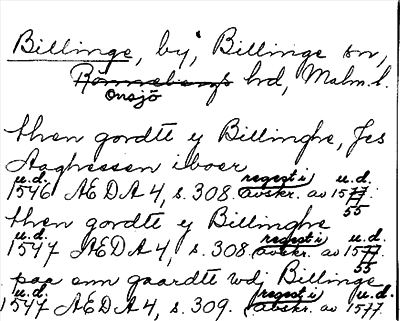 Billinge, by, Billinge sn,
Rönnebergs hd, Malm. l.
Onsjö
then gordtt y Billinghe, Jes
Aaghessen iboer
u.d. regest i u.d.
1546 AEDA 4, s. 308. avskr. av 1577.
55
then gordtt y Billinghe
u.d. regest i u.d.
1547 AEDA 4, s. 308. avskr. av 1577.
55
paa enn gaardte wdj Billinge
u.d. regest i u.d.
1547 AEDA 4, s. 309. avskr. av 1577.